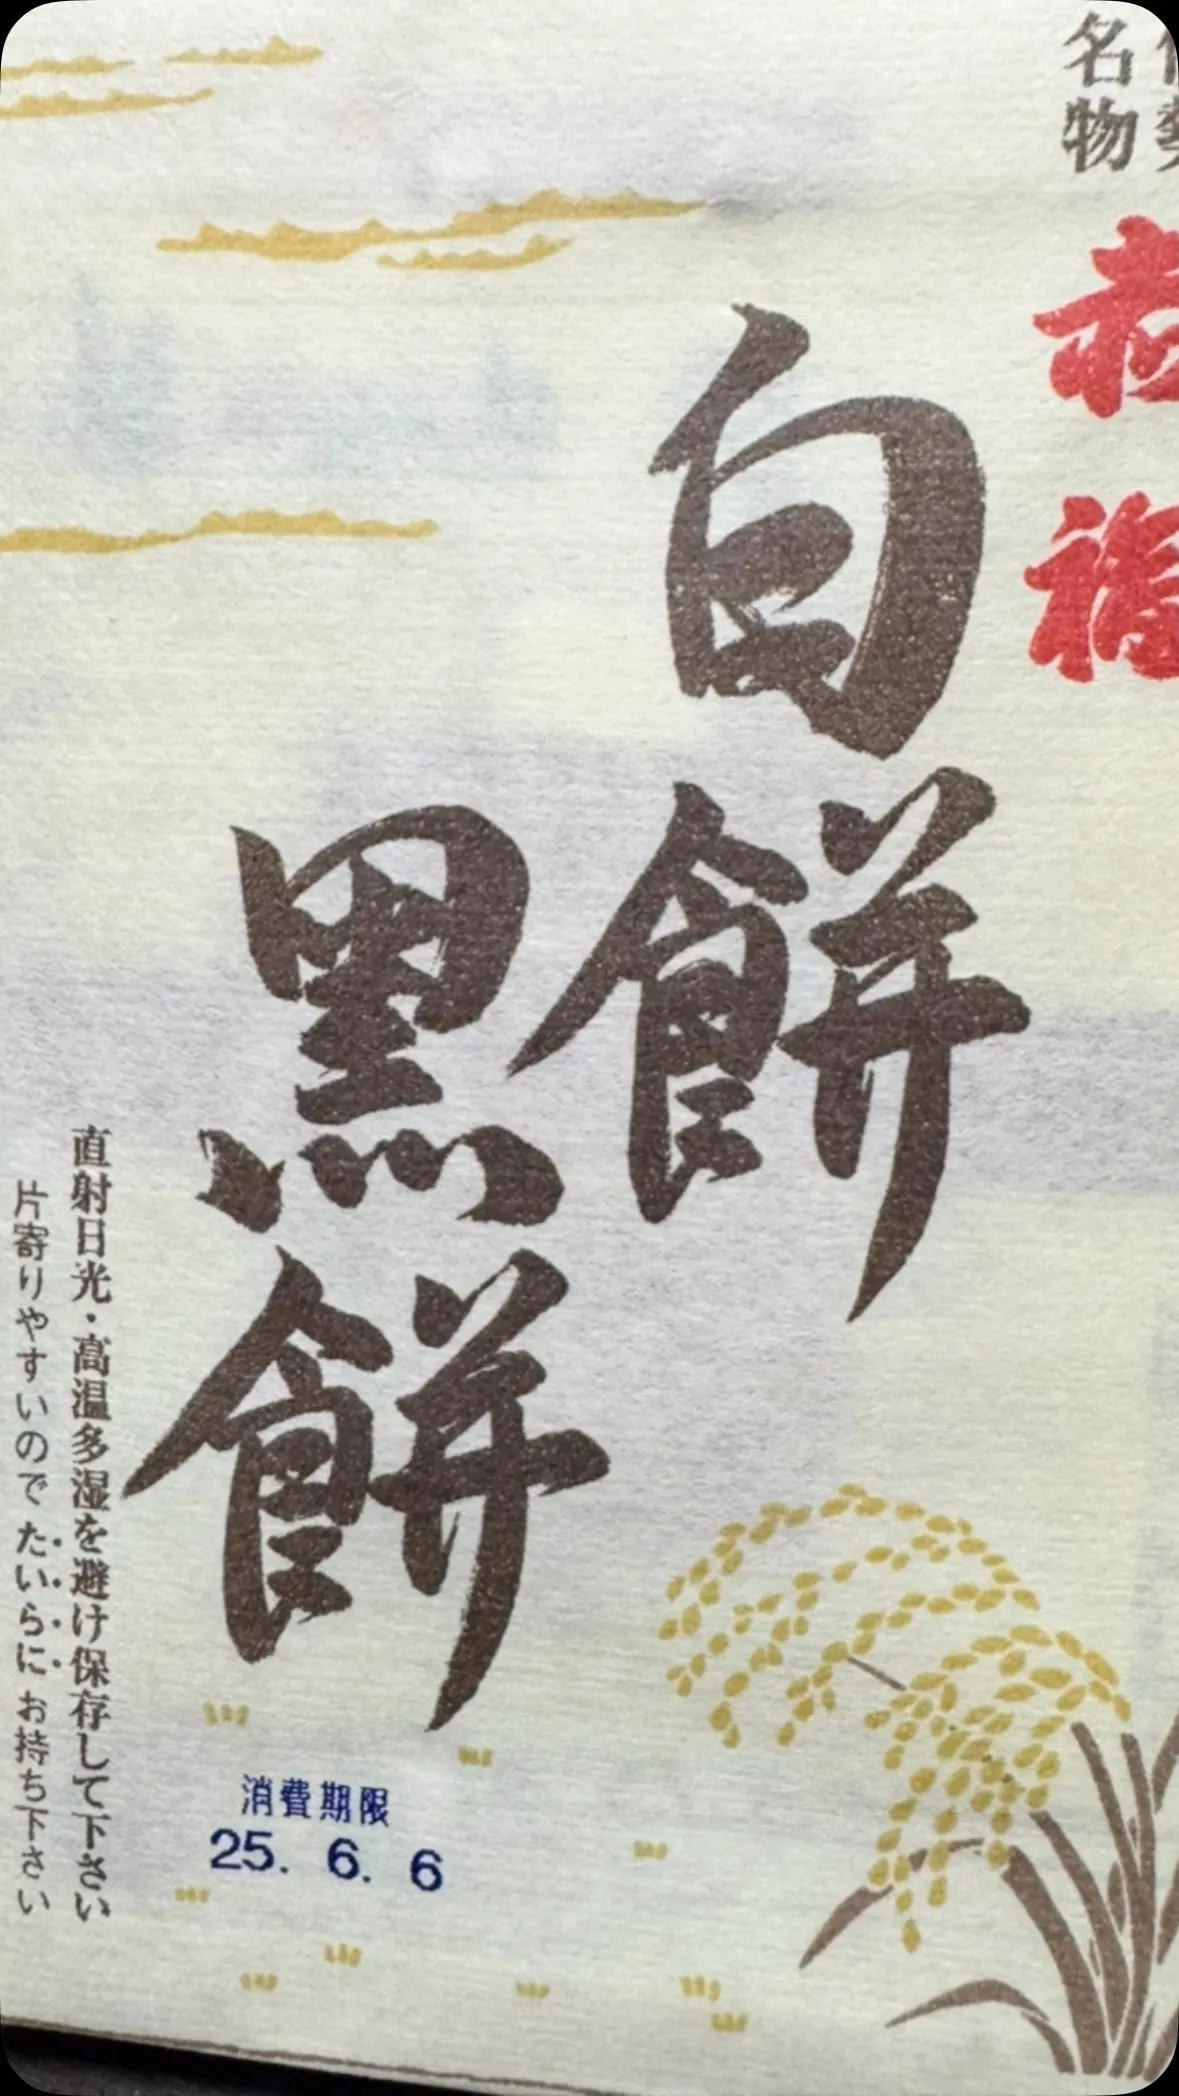 伊勢
名物
赤福
白餅
黒餅
直射日光・高温多湿を避け保存して下さい
片寄りやすいので たいらに お持ち下さい
消費期限
25. 6. 6